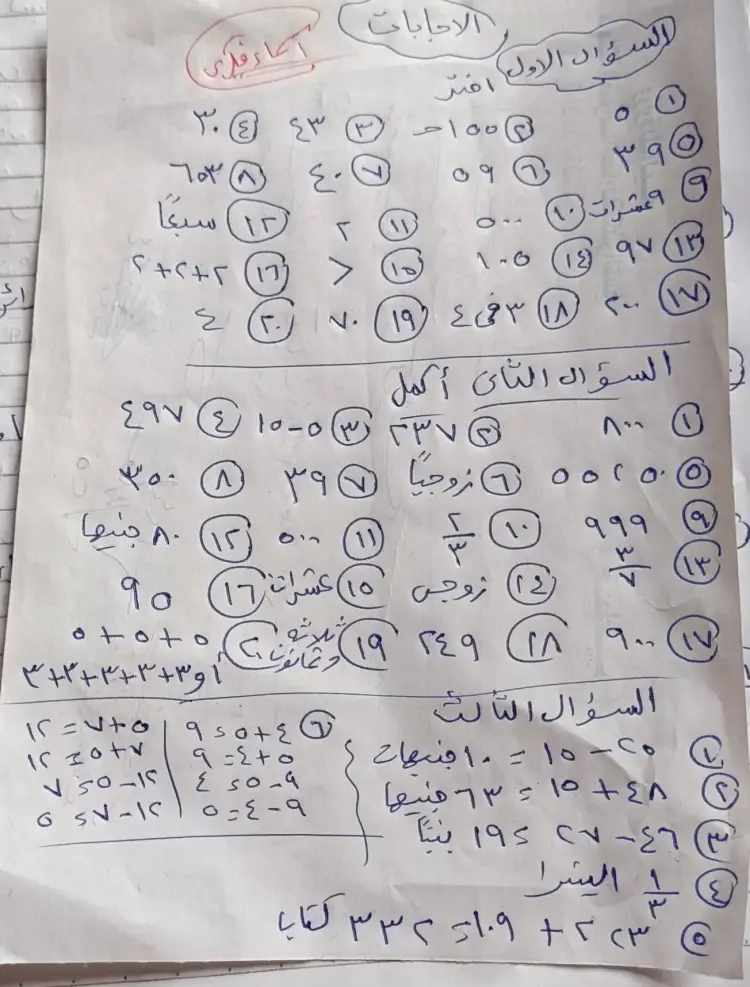 الاجابات
أسماء فكرى
السؤال الاول
اختر
١ ٥ ٢ ١٥٥ ج ٣ ٤٣ ٤ ٣٠
٥ ٣٩ ٦ ٥٩ ٧ ٤٠ ٨ ٦٥٣
٩ ٩ عشرات ١٠ ٥٠٠ ١١ ٢ ١٢ سبعاً
١٣ ٩٧ ١٤ ١٠٥ ١٥ > ١٦ ٢+٢+٢
١٧ ٢٠٠ ١٨ ٣ في ٤ ١٩ ٧٠ ٢٠ ٤
السؤال الثانى أكمل
١ ٨٠٠ ٢ ٢٣٧ ٣ ١٥-٥ ٤ ٤٩٧
٥ ٥٠ ، ٥٥ ٦ زوجيًا ٧ ٣٩ ٨ ٣٥٠
٩ ٩٩٩ ١٠ ٢/٣ ١١ ٥٠٠ ١٢ ٨٠ جنيها
١٣ ٣/٧ ١٤ زوجى ١٥ عشرات ١٦ ٩٥
١٧ ٩٠٠ ١٨ ٢٤٩ ١٩ ثلاثة وثمانون ٢٠ ٥+٥+٥
أو ٣+٣+٣+٣+٣
السؤال الثالث
٢٥-١٥=١٠ جنيهات
٢ ٤٨+١٥=٦٣ جنيها
٣ ٤٦-٢٧=١٩ بنتًا
٤ ١/٣ البيتزا
٥ ٢٢٣+١٠٩=٣٣٢ كتابا
٦ ٤+٥=٩ ٥+٧=١٢
٥+٤=٩ ٧+٥=١٢
٩-٥=٤ ١٢-٥=٧
٩-٤=٥ ١٢-٧=٥